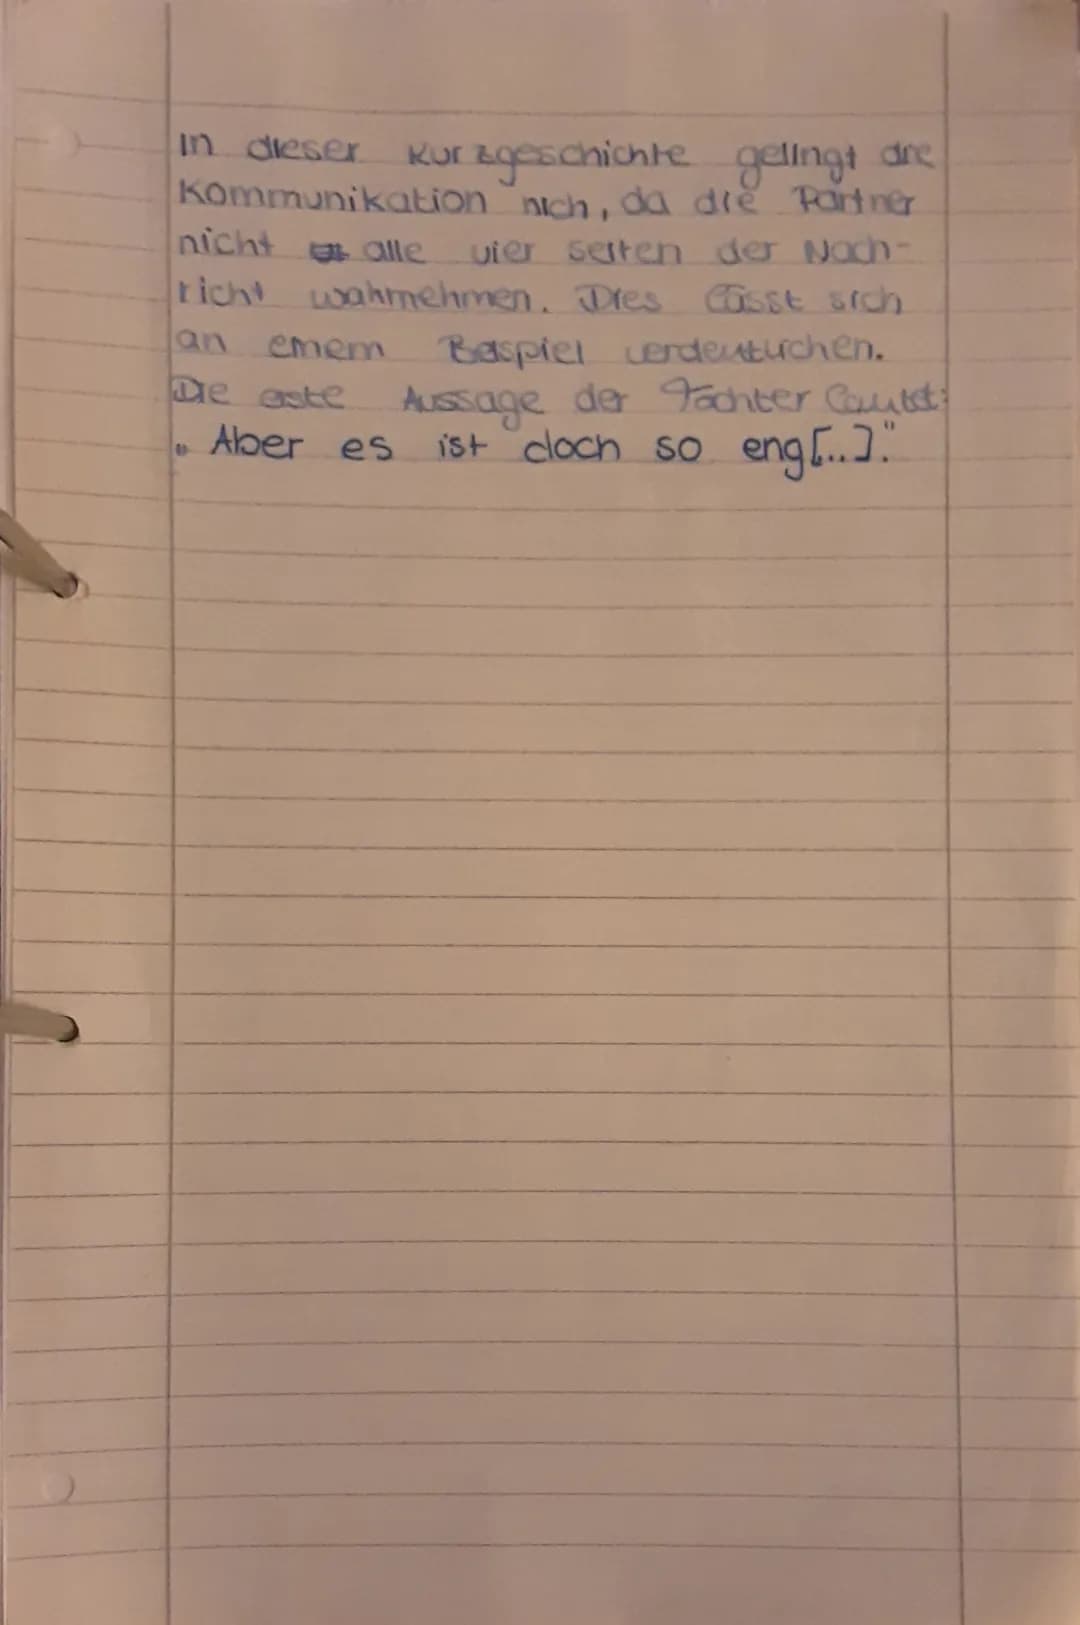 In dieser Kurzgeschichte gelingt die
Kommunikation nich, da die Partner
nicht alle vier seiten der Nach-
richt wahrnehmen. Dies lässt sich
an einem Beispiel verdeutlichen.
Die erste Aussage der Tochter lautet:
„Aber es ist doch so eng[...]."